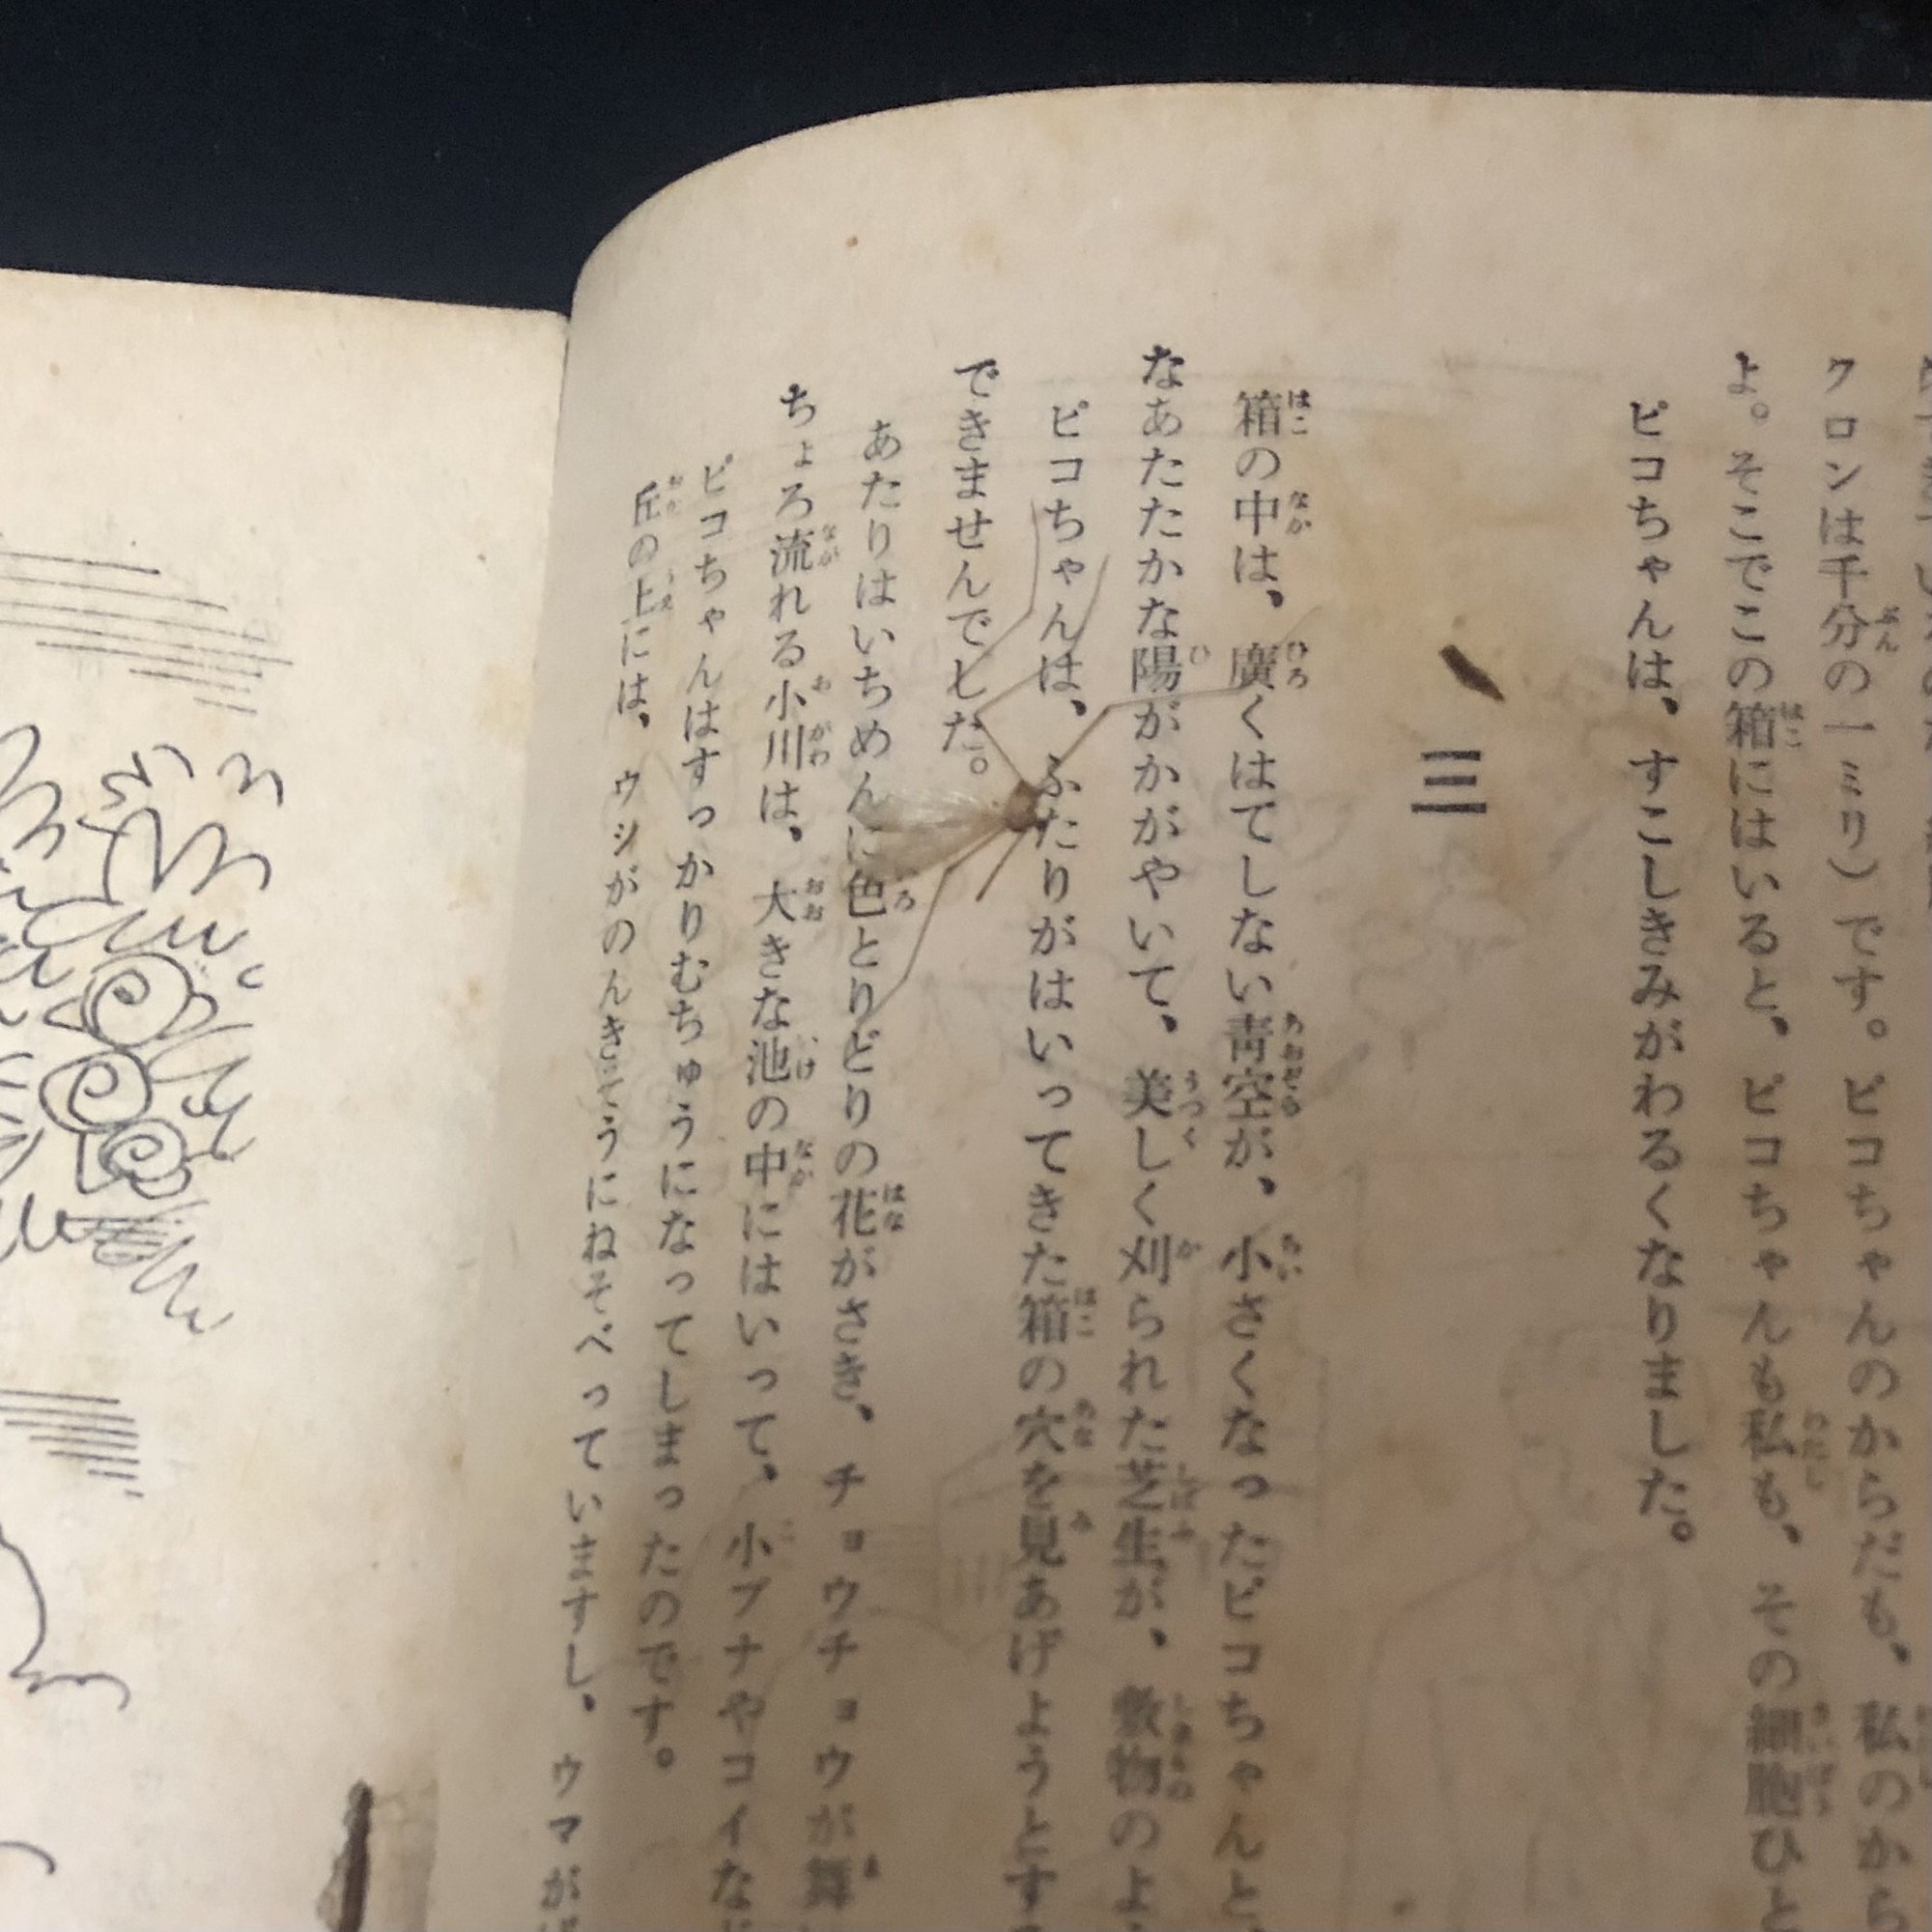 クロンは千分の一ミリ)です。ピコちゃんのからだも、私のから
よ。そこでこの箱にはいると、ピコちゃんも私も、その細胞ひと
ピコちゃんは、すこしきみがわるくなりました。
三
箱の中は、廣くはてしない靑空が、小さくなったピコちゃんと、
なあたたかな陽がかがやいて、美しく刈られた芝生が、敷物のよ
ピコちゃんは、ふたりがはいってきた箱の穴を見あげようとす
できませんでした。
あたりはいちめんに色とりどりの花がさき、チョウチョウが舞
ちょろ流れる小川は、大きな池の中にはいって、小ブナやコイな
ピコちゃんはすっかりむちゅうになってしまったのです。
丘の上には、ウシがのんきそうにねそべっていますし、ウマが